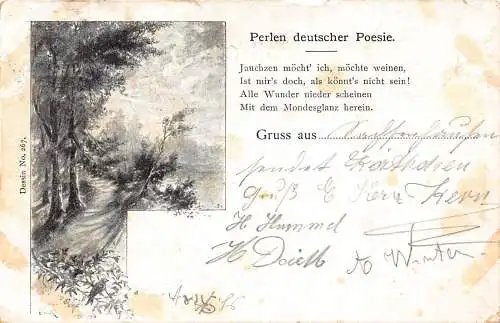 Perlen deutscher Poesie.
Jauchzen möcht' ich, möchte weinen,
Ist mir's doch, als könnt's nicht sein!
Alle Wunder wieder scheinen
Mit dem Mondesglanz herein.
Gruss aus
sendet
Gruß E Kern
H Hummel
Winter
Dessin No. 267.